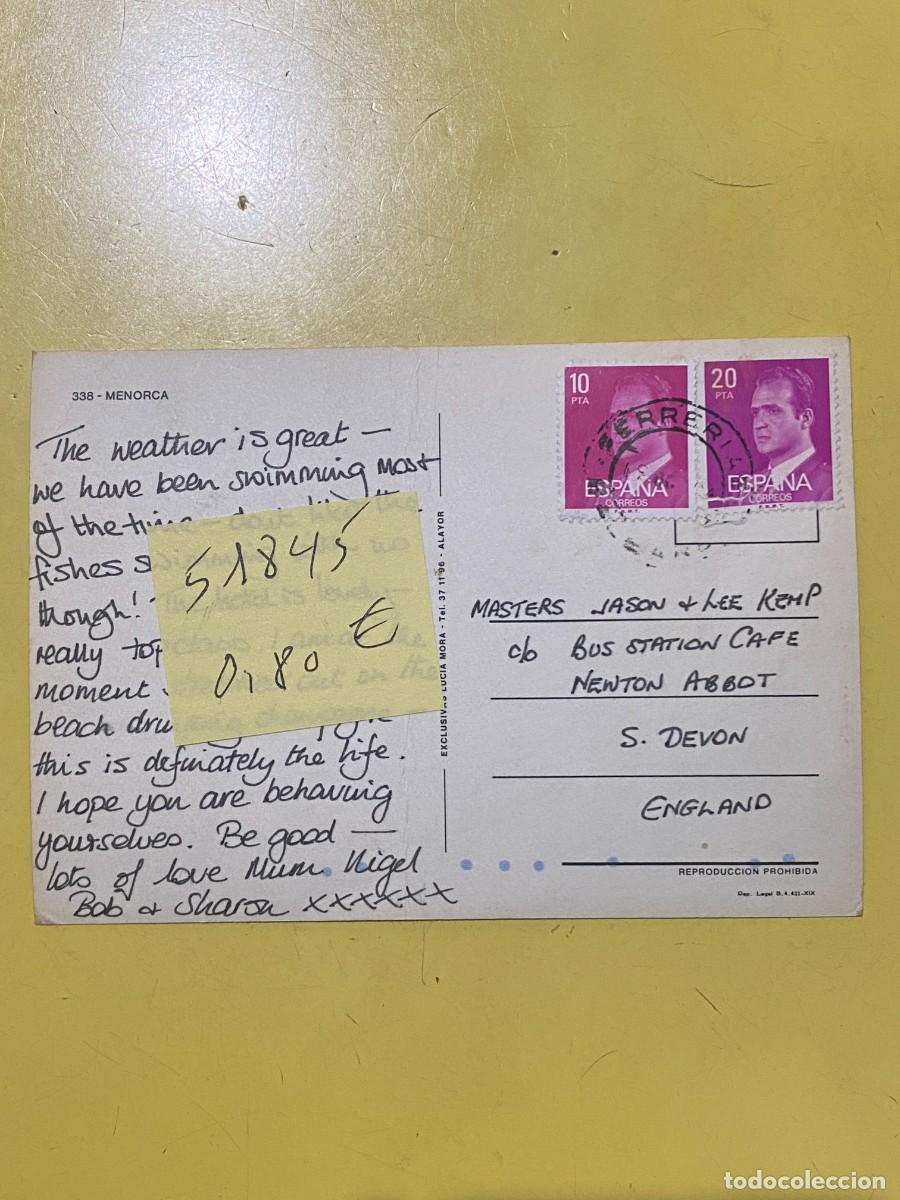 338 - MENORCA
The weather is great –
we have been swimming most
of the time – don't like the
fishes s
though! The hotel is lovely –
really top class
moment out on the
beach
this is definately the life.
I hope you are behaving
yourselves. Be good –
lots of love Mum Nigel
Bob & Sharon xxxxxx
51845
0,80 €
EXCLUSIVAS LUCIA MORA - Tel. 37 11 96 - ALAYOR
10
PTA
ESPAÑA
CORREOS
20
PTA
ESPAÑA
CORREOS
FERRERIA
MASTERS JASON & LEE KEMP
c/o BUS STATION CAFE
NEWTON ABBOT
S. DEVON
ENGLAND
REPRODUCCION PROHIBIDA
Dep. Legal B. 4.421-XIX
todocoleccion